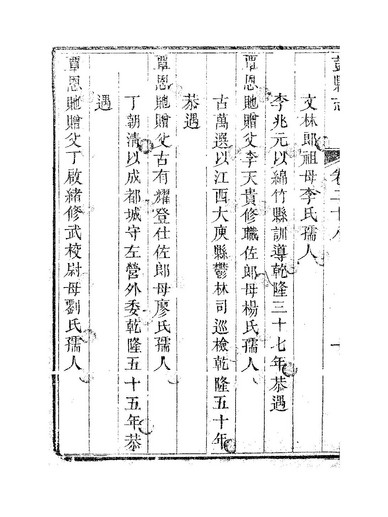 彭縣志 卷二十八
文林郎祖母李氏孺人
李兆元以綿竹縣訓導乾隆三十七年恭遇
覃恩貤贈父李天貴修職佐郎母楊氏孺人
古萬選以江西大庾縣鬱林司巡檢乾隆五十年
恭遇
覃恩貤贈父古有耀登仕佐郎母廖氏孺人
丁朝清以成都城守左營外委乾隆五十五年恭
遇
覃恩貤贈父丁啟緒修武校尉母劉氏孺人